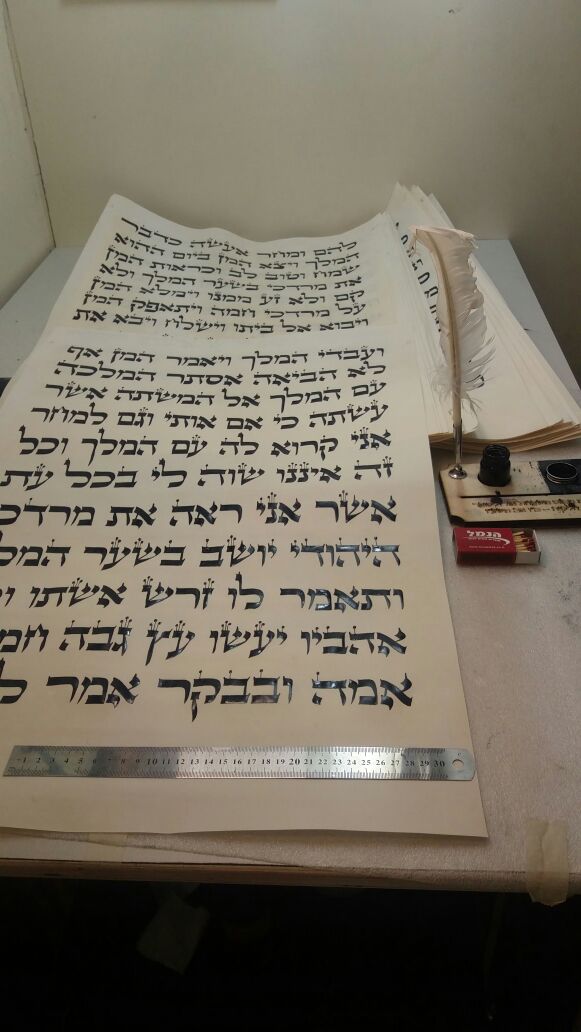 להם ומחר אעשה כדבר
המלך ויצא המן ביום ההוא
שמח וטוב לב וכראות המן
את מרדכי בשער המלך ולא
קם ולא זע ממנו וימלא המן
על מרדכי חמה ויתאפק המן
ויבוא אל ביתו וישלח ויבא את
ועבדי המלך ויאמר המן אף
לא הביאה אסתר המלכה
עם המלך אל המשתה אשר
עשתה כי אם אותי וגם למחר
אני קרוא לה עם המלך וכל
זה איננו שוה לי בכל עת
אשר אני ראה את מרדכ
היהודי יושב בשער המל
ותאמר לו זרש אשתו
אהביו יעשו עץ גבה חמ
אמה ובבקר אמר ל
הנמל
1 2 3 4 5 6 7 8 9 10 11 12 13 14 15 16 17 18 19 20 21 22 23 24 25 26 27 28 29 30